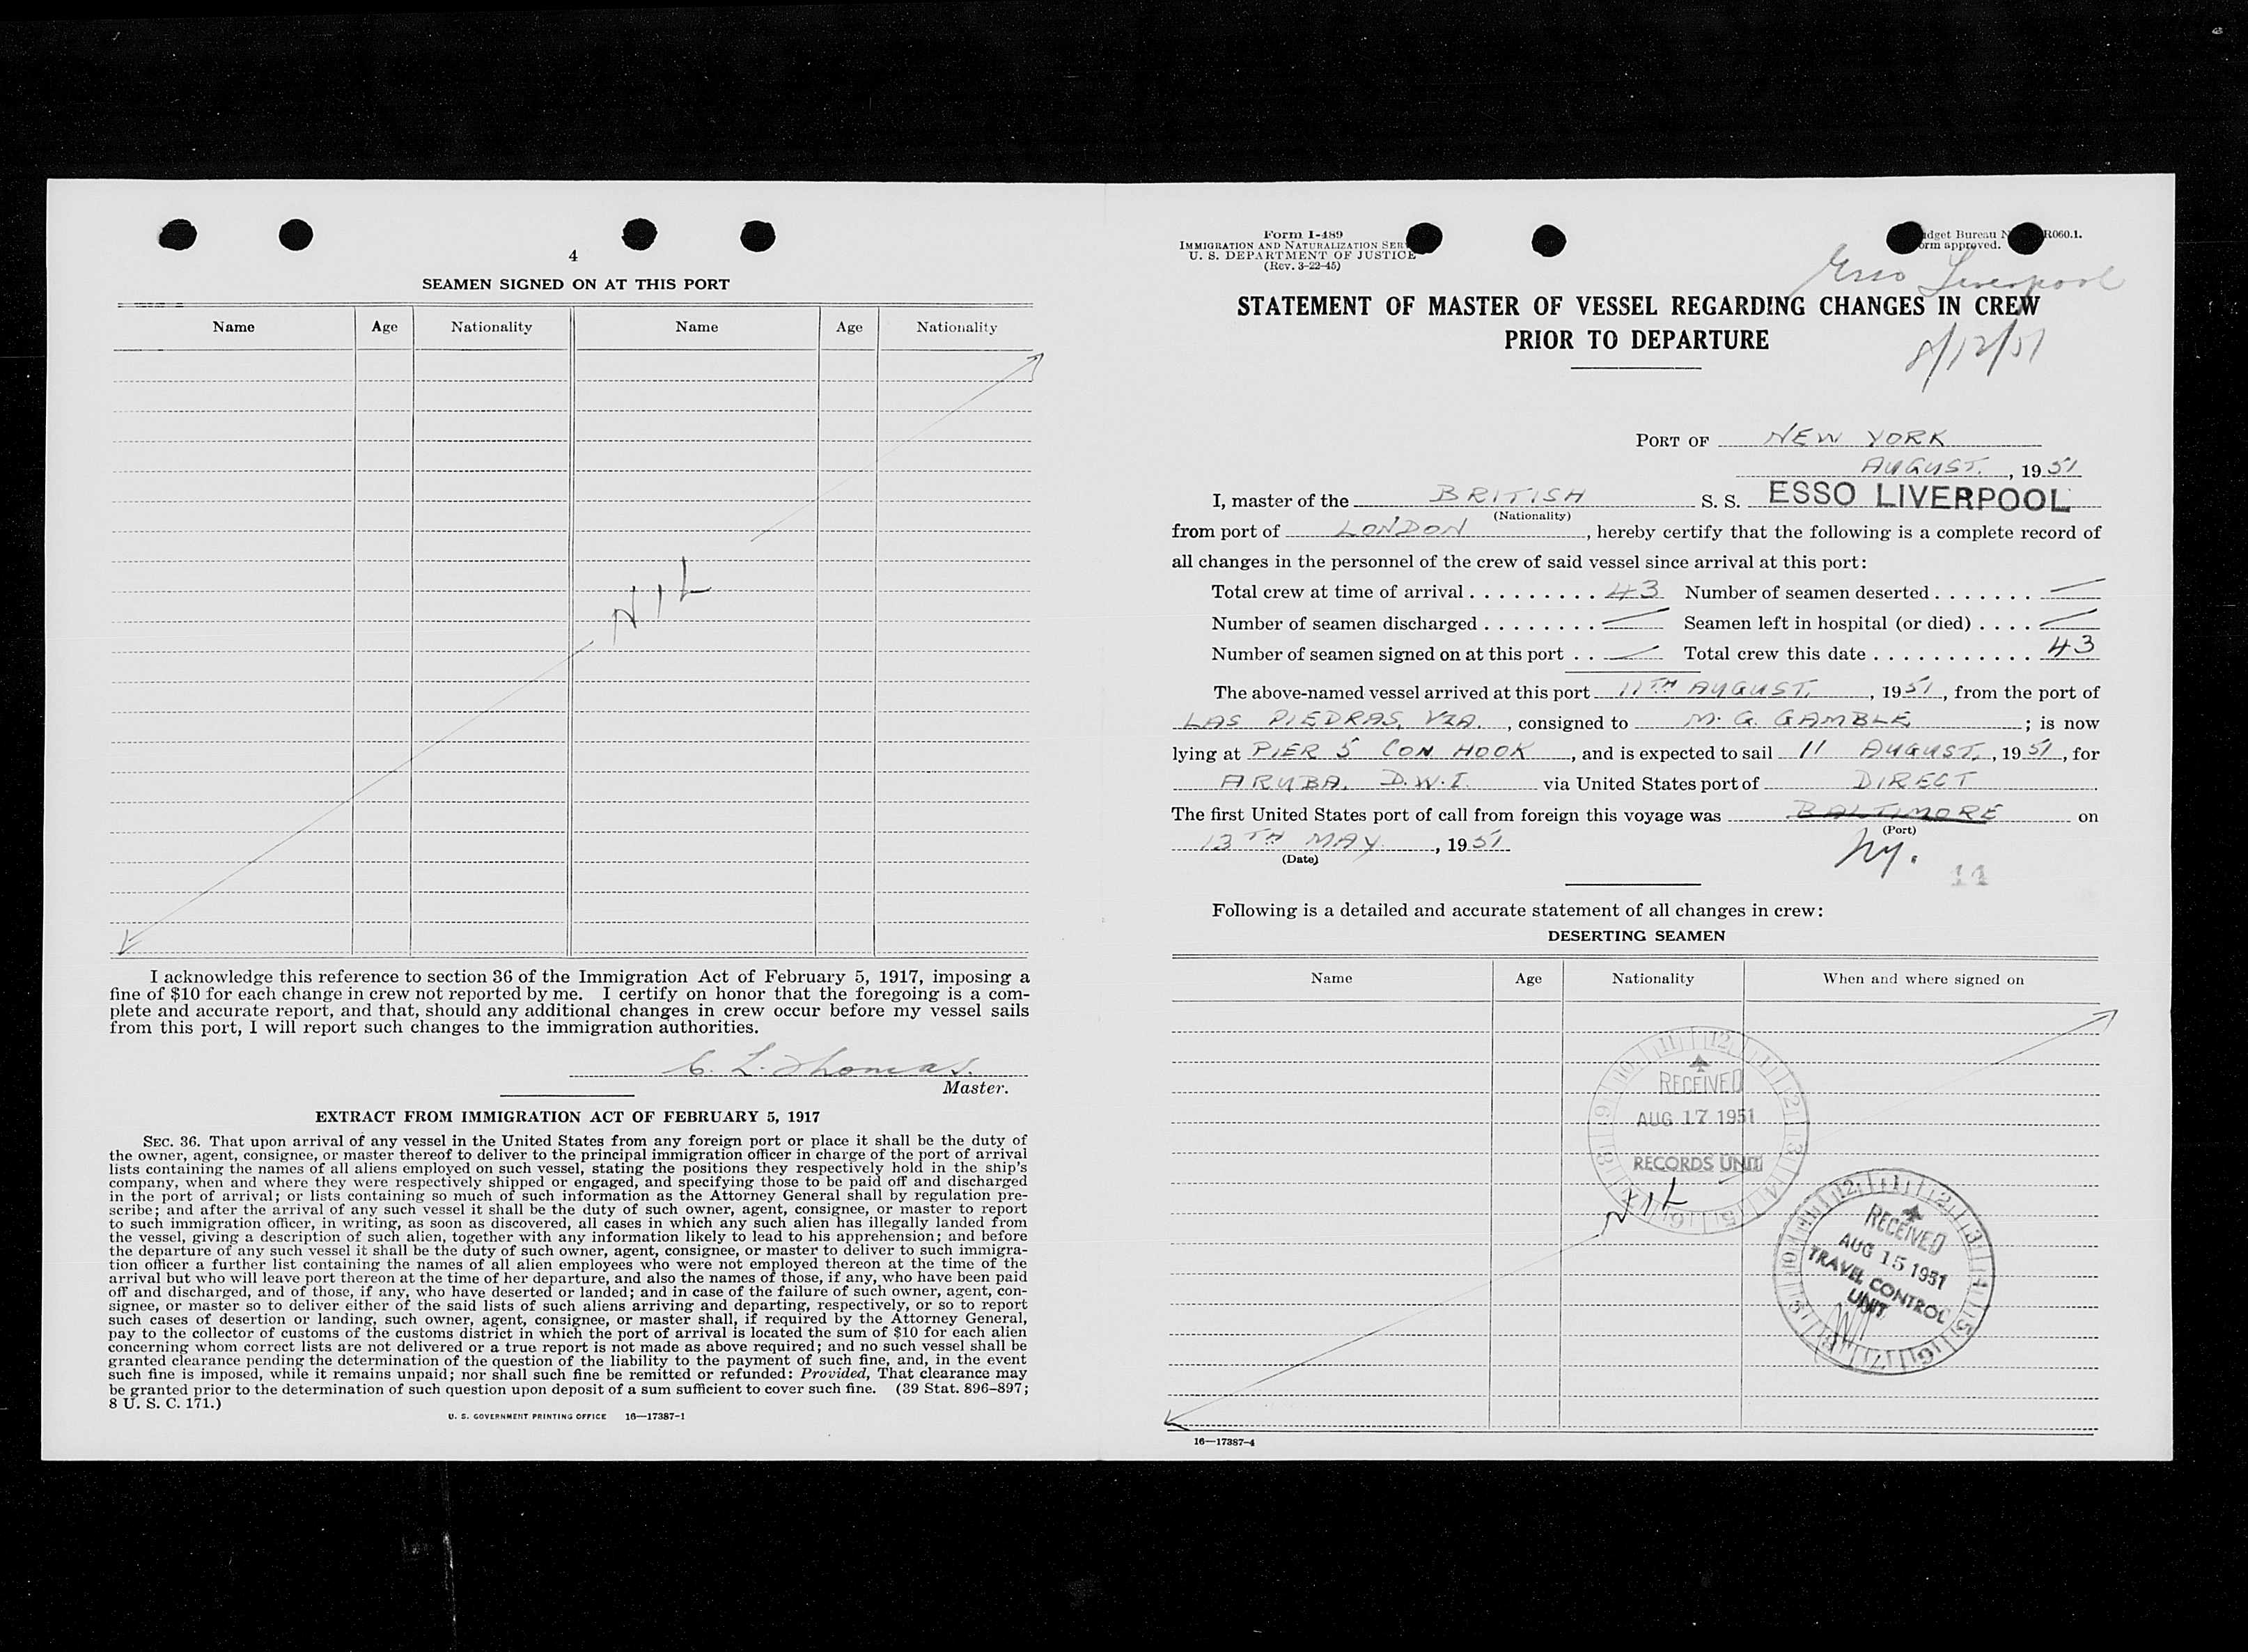 4
SEAMEN SIGNED ON AT THIS PORT
Name Age Nationality Name Age Nationality
NIL
I acknowledge this reference to section 36 of the Immigration Act of February 5, 1917, imposing a
fine of $10 for each change in crew not reported by me. I certify on honor that the foregoing is a com-
plete and accurate report, and that, should any additional changes in crew occur before my vessel sails
from this port, I will report such changes to the immigration authorities.
C. L. Thomas.
Master.
EXTRACT FROM IMMIGRATION ACT OF FEBRUARY 5, 1917
SEC. 36. That upon arrival of any vessel in the United States from any foreign port or place it shall be the duty of
the owner, agent, consignee, or master thereof to deliver to the principal immigration officer in charge of the port of arrival
lists containing the names of all aliens employed on such vessel, stating the positions they respectively hold in the ship's
company, when and where they were respectively shipped or engaged, and specifying those to be paid off and discharged
in the port of arrival; or lists containing so much of such information as the Attorney General shall by regulation pre-
scribe; and after the arrival of any such vessel it shall be the duty of such owner, agent, consignee, or master to report
to such immigration officer, in writing, as soon as discovered, all cases in which any such alien has illegally landed from
the vessel, giving a description of such alien, together with any information likely to lead to his apprehension; and before
the departure of any such vessel it shall be the duty of such owner, agent, consignee, or master to deliver to such immigra-
tion officer a further list containing the names of all alien employees who were not employed thereon at the time of the
arrival but who will leave port thereon at the time of her departure, and also the names of those, if any, who have been paid
off and discharged, and of those, if any, who have deserted or landed; and in case of the failure of such owner, agent, con-
signee, or master so to deliver either of the said lists of such aliens arriving and departing, respectively, or so to report
such cases of desertion or landing, such owner, agent, consignee, or master shall, if required by the Attorney General,
pay to the collector of customs of the customs district in which the port of arrival is located the sum of $10 for each alien
concerning whom correct lists are not delivered or a true report is not made as above required; and no such vessel shall be
granted clearance pending the determination of the question of the liability to the payment of such fine, and, in the event
such fine is imposed, while it remains unpaid; nor shall such fine be remitted or refunded: Provided, That clearance may
be granted prior to the determination of such question upon deposit of a sum sufficient to cover such fine. (39 Stat. 896-897;
8 U. S. C. 171.)
U. S. GOVERNMENT PRINTING OFFICE 16—17387-1
Form I-489
IMMIGRATION AND NATURALIZATION SER
U. S. DEPARTMENT OF JUSTICE
(Rev. 3-22-45)
dget Bureau N R060.1.
orm approved.
Esso Liverpool
STATEMENT OF MASTER OF VESSEL REGARDING CHANGES IN CREW
PRIOR TO DEPARTURE
8/12/51
PORT OF NEW YORK
AUGUST. , 1951
I, master of the BRITISH S. S. ESSO LIVERPOOL
(Nationality)
from port of LONDON , hereby certify that the following is a complete record of
all changes in the personnel of the crew of said vessel since arrival at this port:
Total crew at time of arrival . . . . . . . . . 43 Number of seamen deserted . . . . . . . —
Number of seamen discharged . . . . . . . . — Seamen left in hospital (or died) . . . . —
Number of seamen signed on at this port . . — Total crew this date . . . . . . . . . . . 43
The above-named vessel arrived at this port 11TH AUGUST, , 1951, from the port of
LAS PIEDRAS, VZA. , consigned to M. G. GAMBLE ; is now
lying at PIER 5 CON HOOK , and is expected to sail 11 AUGUST, , 1951, for
ARUBA. D.W.I. via United States port of DIRECT
The first United States port of call from foreign this voyage was BALTIMORE on
(Port)
13TH MAY , 1951
(Date)
NY.
11
Following is a detailed and accurate statement of all changes in crew:
DESERTING SEAMEN
Name Age Nationality When and where signed on
RECEIVED
AUG 17 1951
RECORDS UNIT
NIL
RECEIVED
AUG 15 1951
TRAVEL CONTROL
UNIT
16—17387-4